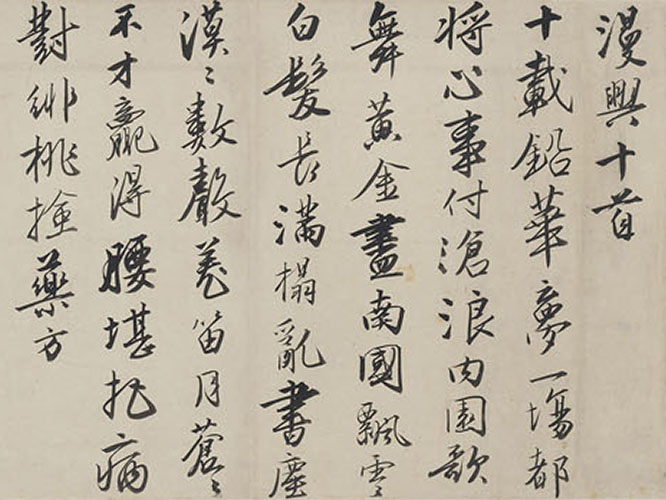 漫興十首
十載鉛華夢一場都
將心事付滄浪內園歌
舞黃金盡南國飄零
白髮長滿榻亂書塵
漠〻數聲羌笛月蒼〻
不才贏得腰堪把病
對緋桃撿藥方